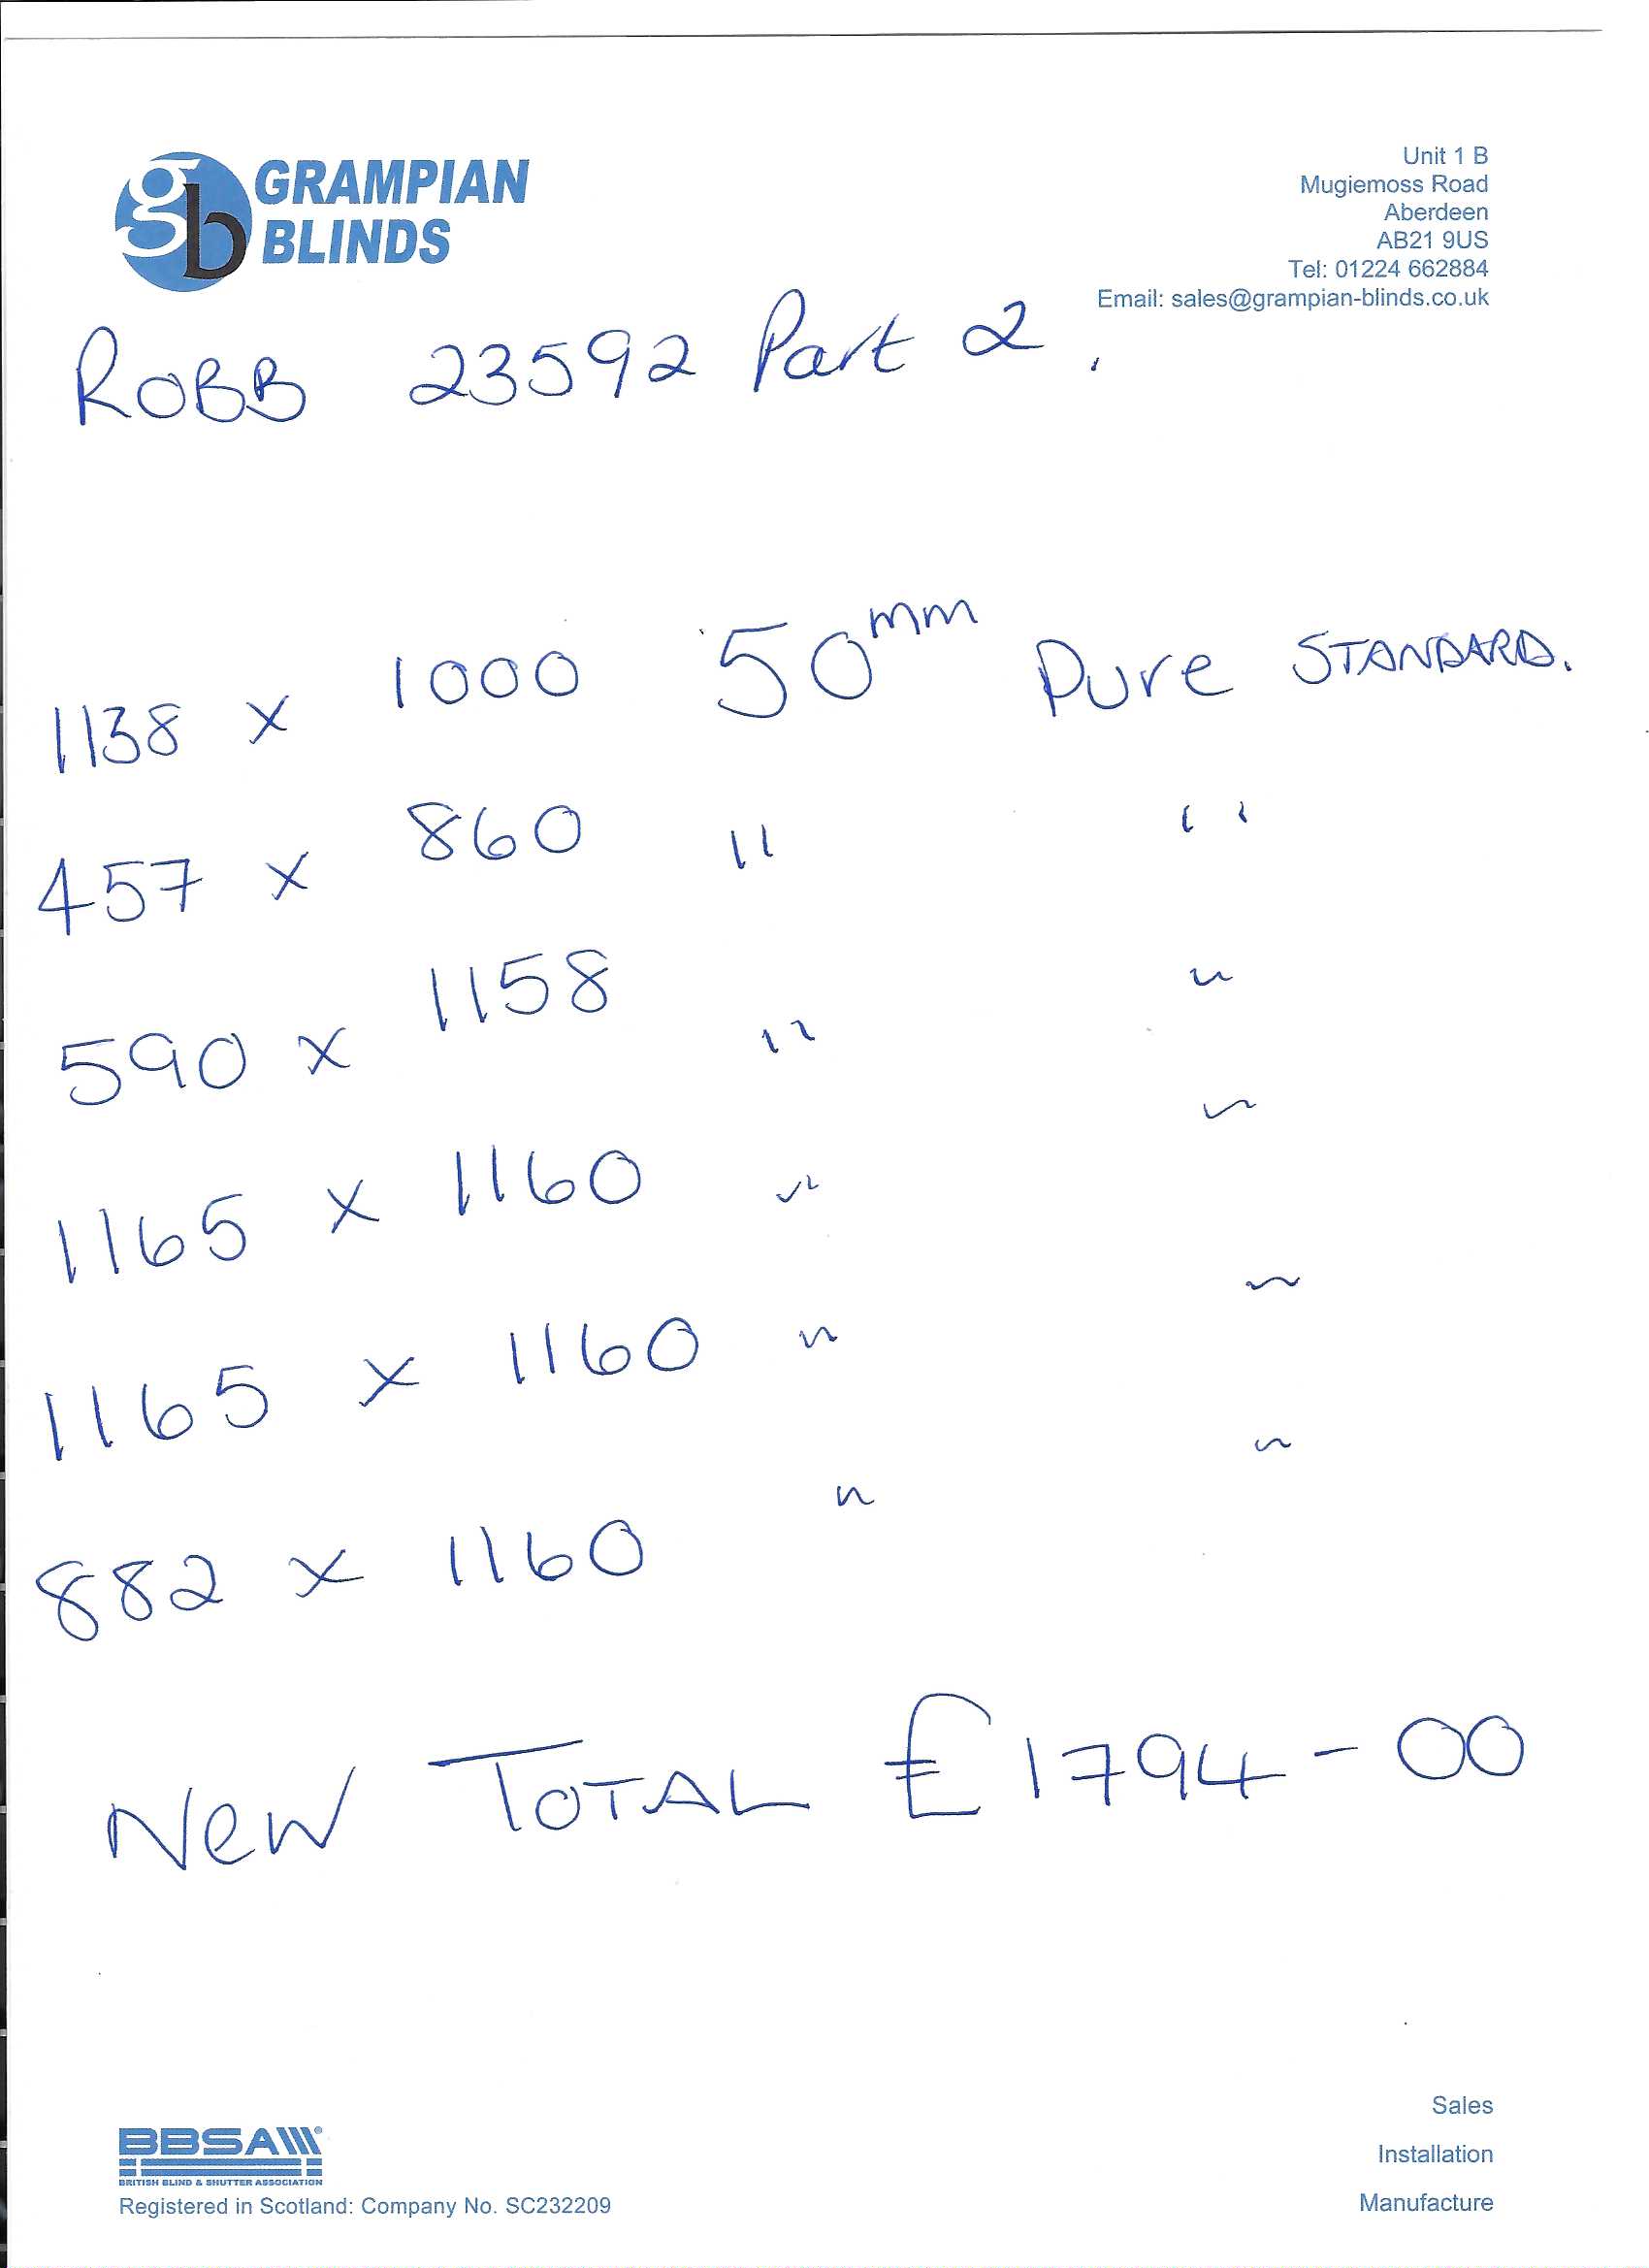 gb GRAMPIAN
BLINDS
Unit 1 B
Mugiemoss Road
Aberdeen
AB21 9US
Tel: 01224 662884
Email: sales@grampian-blinds.co.uk
ROBB 23592 Part 2.
1138 x 1000 50mm Pure STANDARD.
457 x 860 " "
590 x 1158 " "
1165 x 1160 " "
1165 x 1160 " "
882 x 1160 " "
New TOTAL £1794-00
BBSA®
BRITISH BLIND & SHUTTER ASSOCIATION
Registered in Scotland: Company No. SC232209
Sales
Installation
Manufacture